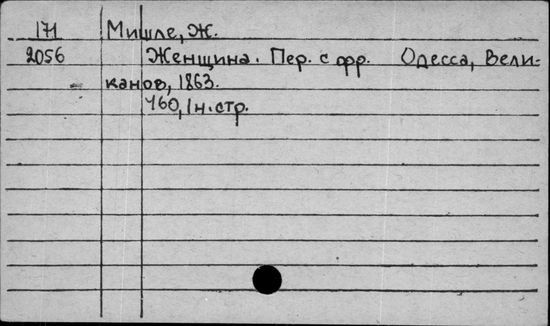 171 Мишле, Ж.
2056 Женщина. Пер. с фр. Одесса, Вели-
канов, 1863.
460, 1 н. стр.